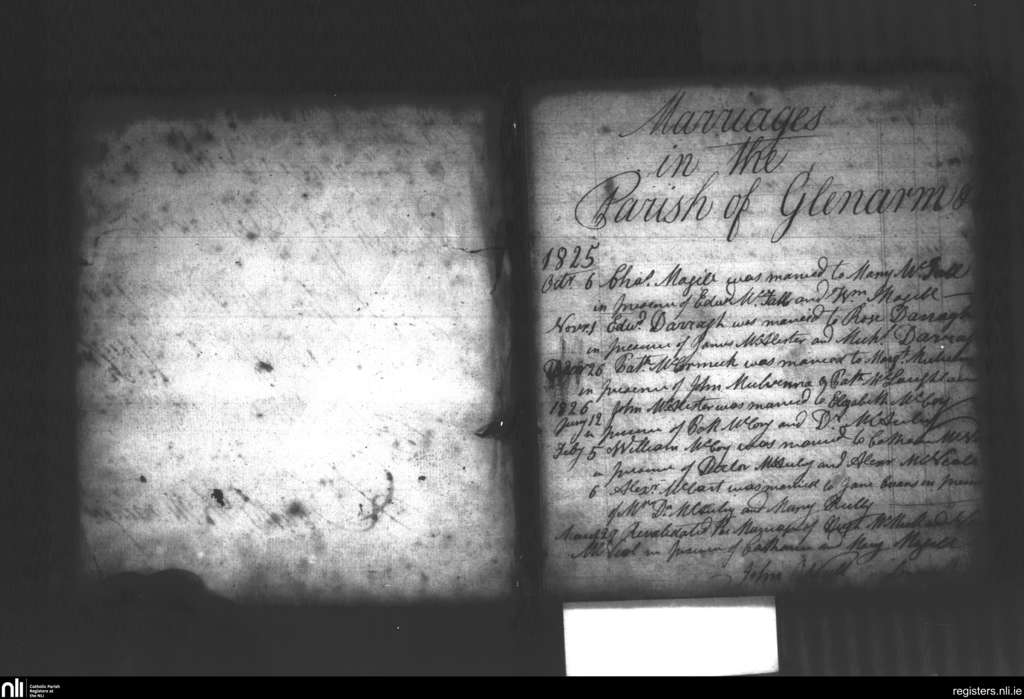 Marriages
in the
Parish of Glenarm &
1825
Octr 6 Chas. Magill was married to Mary McFall
in presence of Edwd McFall and Wm Magill
Novr 1 Edwd. Darragh was married to Rose Darragh
in presence of James McAlester and Michl. Darragh
26 Patk. McCormick was married to Margt.
in presence of John Mulvenna & Patk. McLaughlan
1826
Jany 12 John McAlister was married to Elizabeth McCoy
in presence of Patk McCoy and Dr. McAuley
Feby 5 William McCoy was married to Catharine
in presence of Doctor McAuley and Alexr McNeale
6 Alexr. McCart was married to Jane Evans in presence
of Mrs Dr. McAuley and Mary Reilly
March 29 Revalidated the Marriage of Hugh and
in presence of Catharine and Mary Magill
John
nli Catholic Parish
Registers at
the NLI
registers.nli.ie